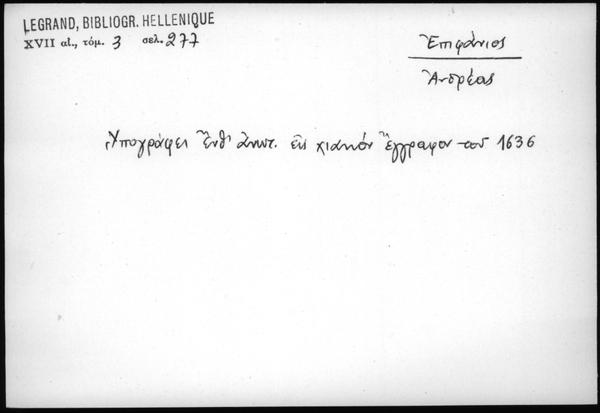 LEGRAND, BIBLIOGR. HELLENIQUE
XVII αἰ., τόμ. 3 σελ. 277
Ἐπιφάνιος
Ἀνδρέας
Ὑπογράφει ἔνθ' ἀνωτ. εἰς χιακὸν ἔγγραφον τοῦ 1636